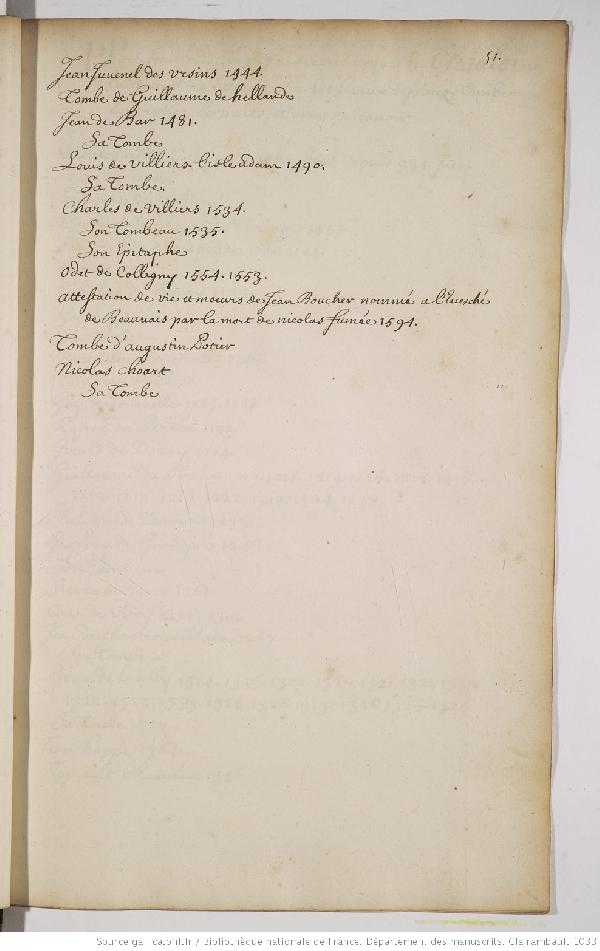 51.
Jean Juvenel des ursins 1444.
Tombe de Guillaume de hellande
Jean de Bar 1481.
Sa Tombe
Louis de villiers l'isle adam 1490.
Sa Tombe.
Charles de villiers 1534.
Son Tombeau 1535.
Son Epitaphe
Odet de Colligny 1554. 1553.
Attestation de vie et moeurs de Jean Boucher nommé a l'Euesché
de Beauuais par la mort de nicolas fumée 1594.
Tombe d'augustin Potier
Nicolas Choart
Sa Tombe
Source gallica.bnf.fr / Bibliothèque nationale de France. Département des manuscrits. Clairambault 1033